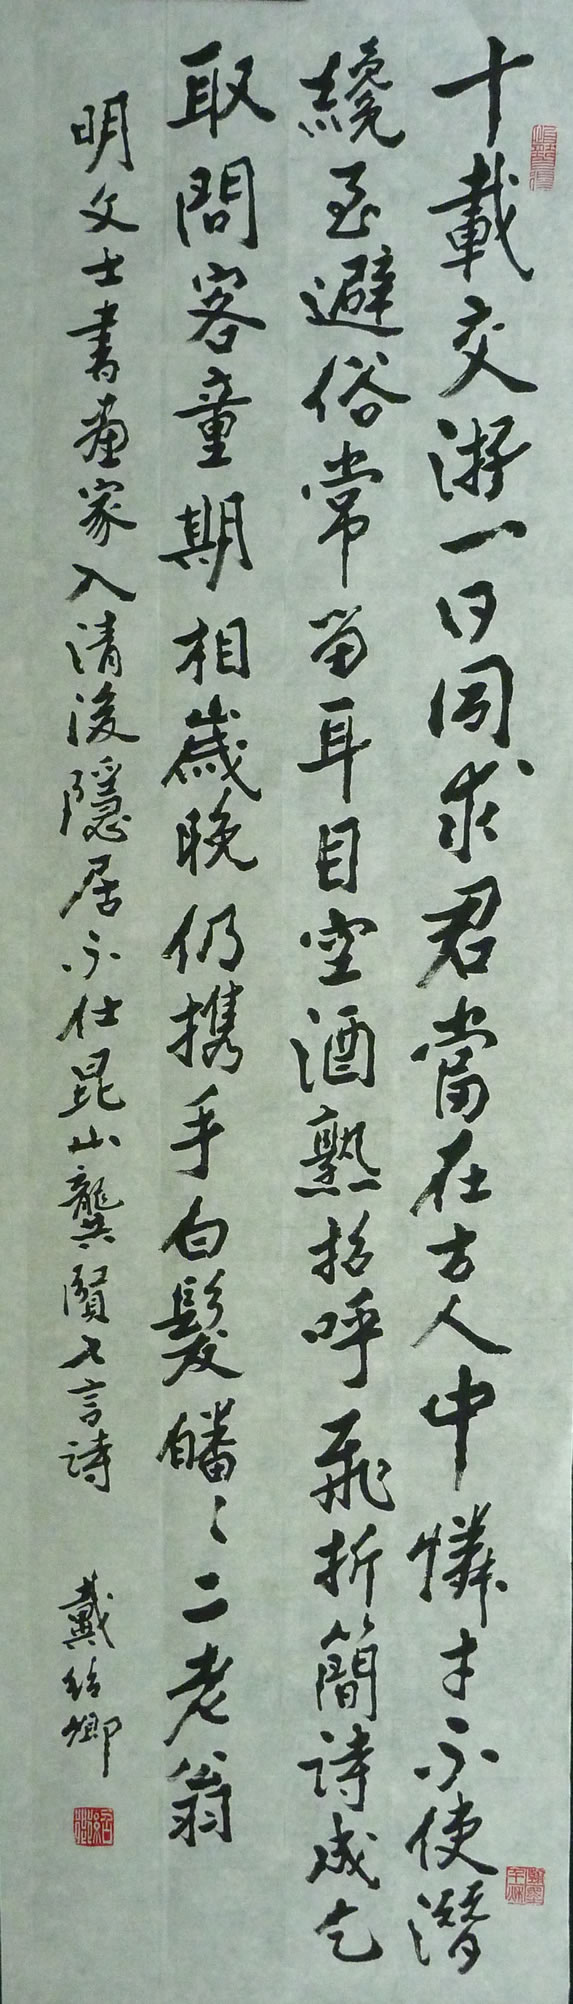 十載交游一日同求君當在古人中憐才不使潛
纔至避俗常留耳目空酒熟招呼飛折簡詩成乞
取問客童期相歲晚仍携手白髮皤〻二老翁
明文士書畫家入清後隱居不仕昆山龔賢七言詩
戴紹卿